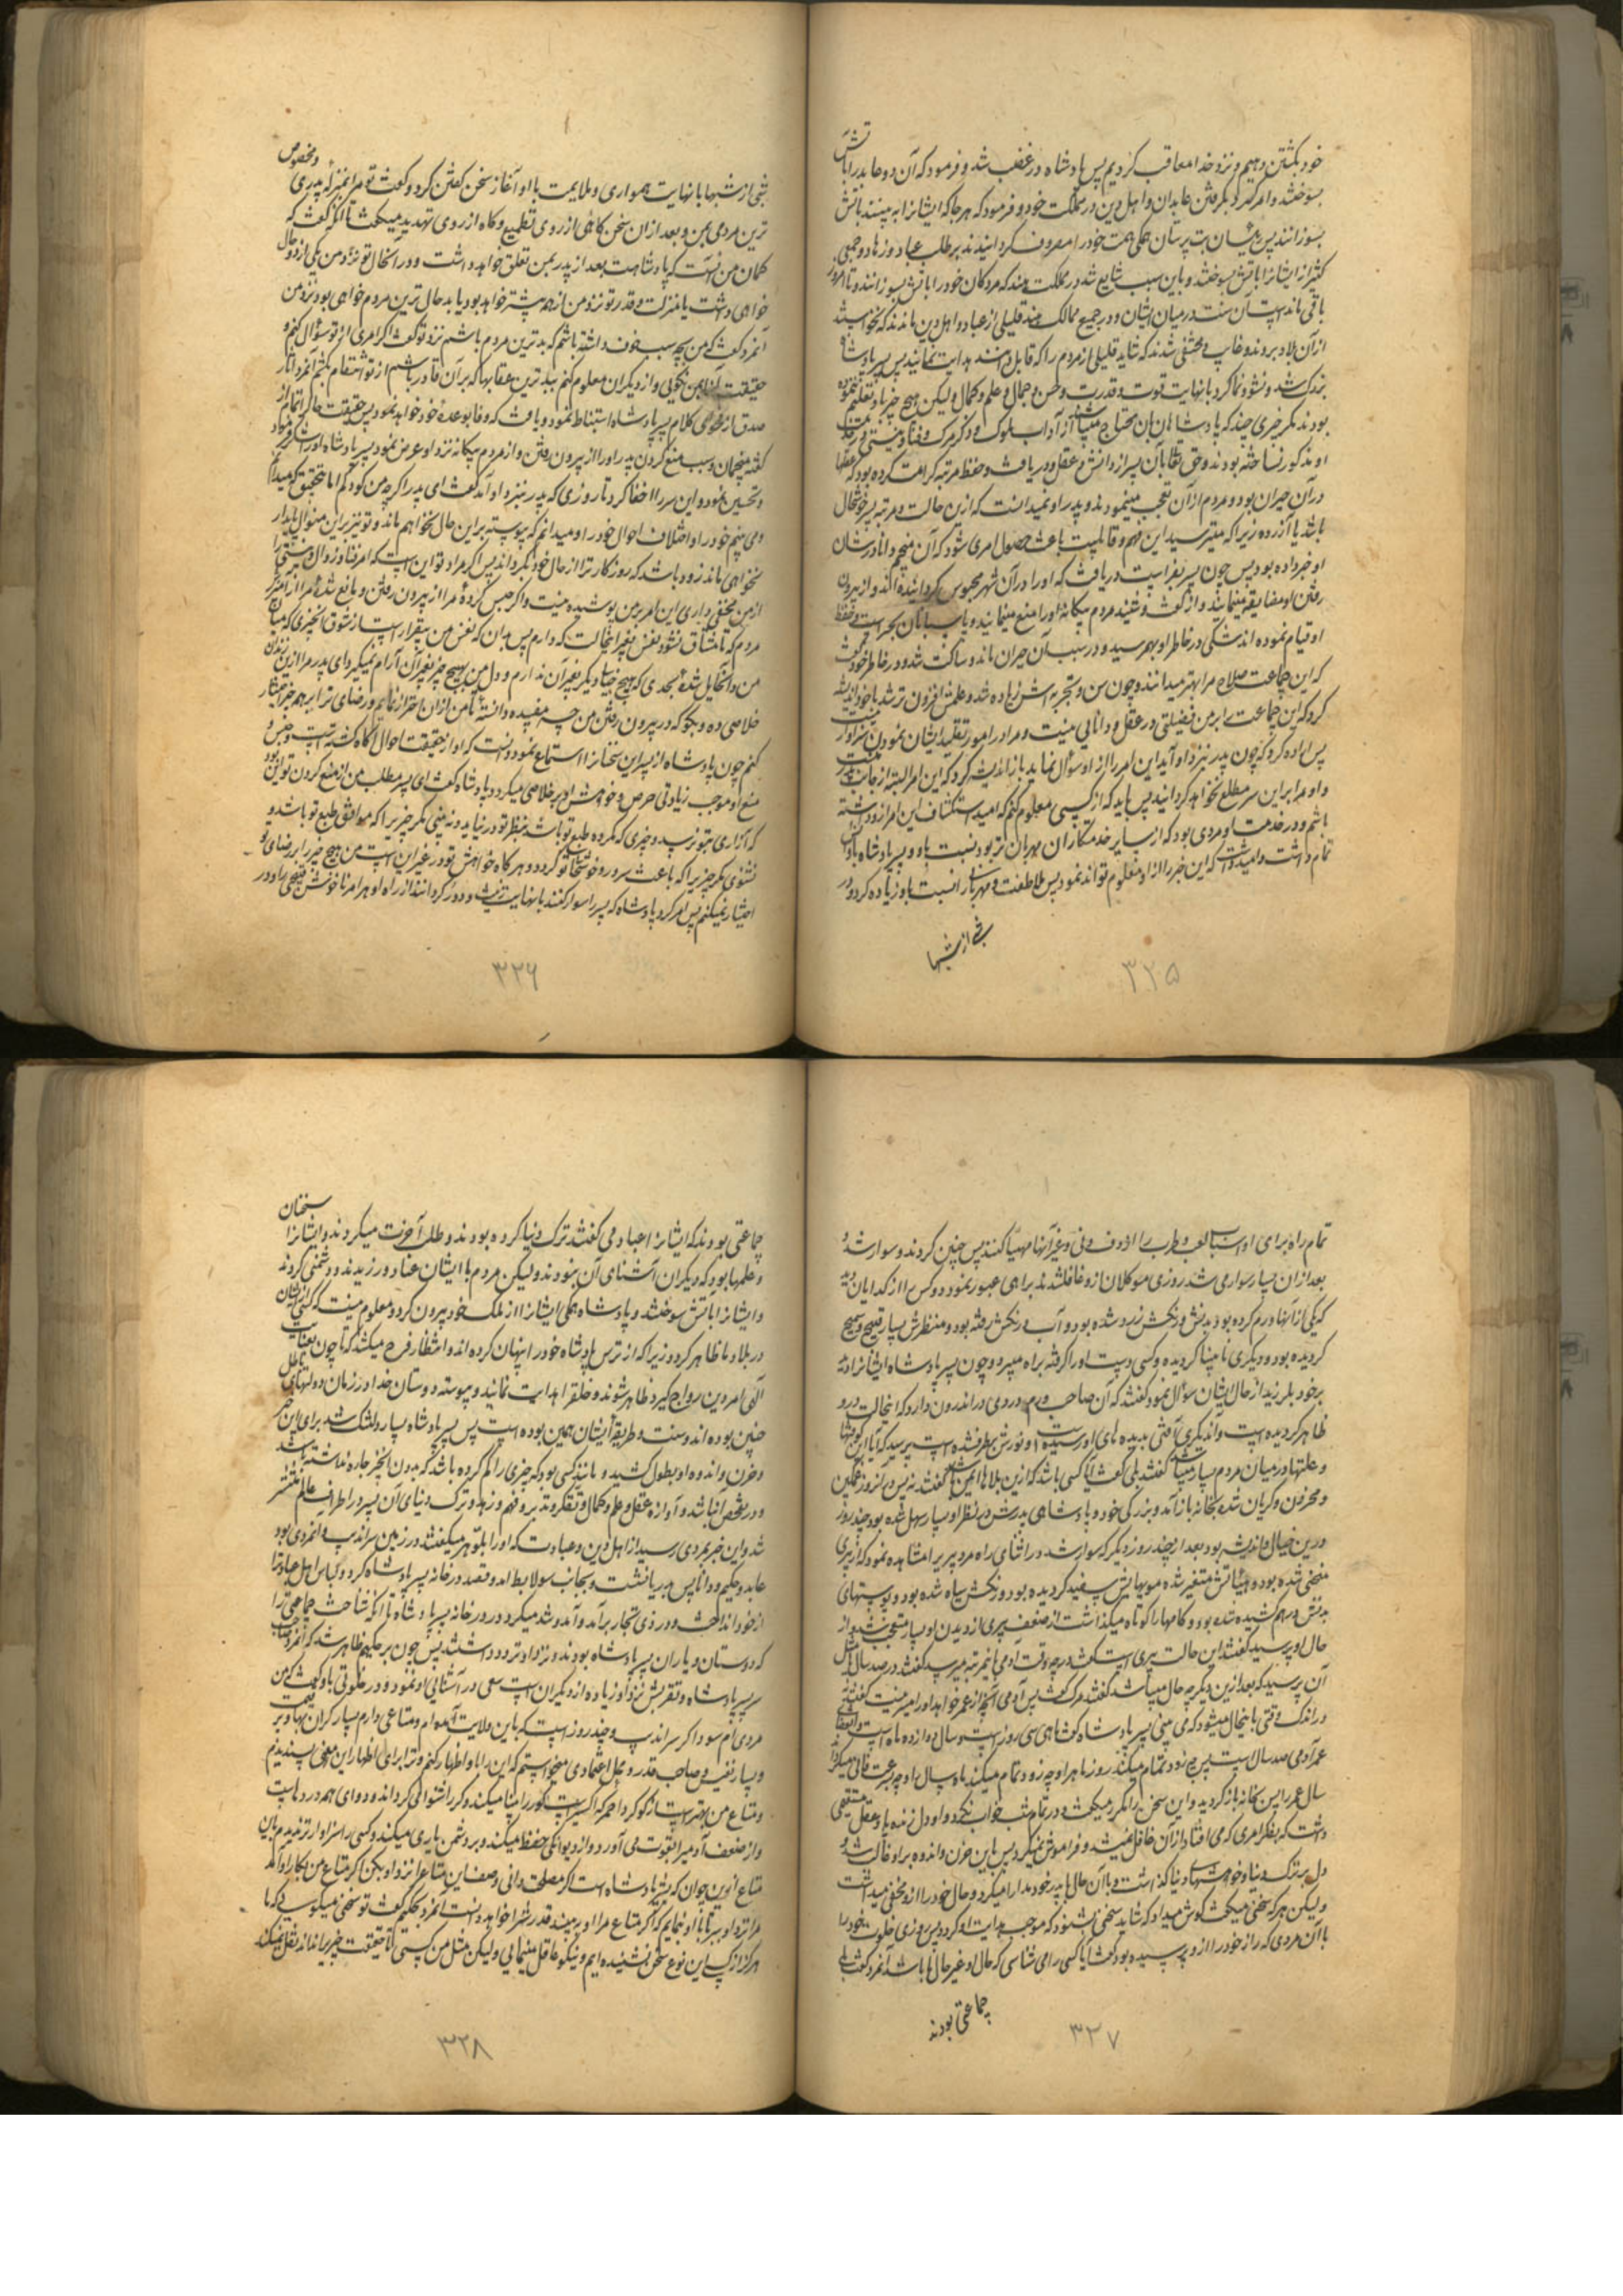 خود بکشتن دهیم و نزد خدا معاقب گردیم پس پادشاه در غضب شد و فرمود که آن دو عابد را بآتش
بسوختند و امر کرد بگرفتن عابدان و اهل دین در مملکت خود و فرمود که هر جا که ایشانرا به بینند بآتش
بسوزانند پس بت پرستان همگی همت خود را مصروف گردانیدند بر طلب عباد و زهاد و جمعی
کثیر از ایشانرا بآتش سوختند و باین سبب شایع شد در مملکت هند که مردکان خود را بآتش بسوزانند و تا امروز
باقی مانده است آن سنت در میان ایشان و در جمیع ممالک هند قلیلی از عباد و اهل دین ماندند که نخواستند
از آن بلاد بروند و غایب و مخفی شدند که شاید قلیلی از مردم را که قابل دانند هدایت نمایند پس پسر پادشاه
بزرک شد و نشو و نما کرد با نهایت قوت و قدرت و حسن و جمال و علم و کمال و لیکن هیچ چیز باو تعلیم ننموده
بودند مگر چیزی چند که پادشاهان بآن محتاج میباشند از آداب ملوک و ذکر مرک و فنا و نیستی در خدمت
او مذکور نساخته بودند و حق تعالی بآن پسر از دانش و عقل و دریافت و حفظ مرتبه کرامت کرده بود که عقلها
در آن حیران بود و مردم از آن تعجب مینمودند و پدر او نمیدانست که از این حالت و مرتبه پسر خوشحال
باشد یا آزرده زیرا که میترسید این فهم و قابلیت باعث حصول امری شود که آن منجم دانا در شان
او خبر داده بود پس چون پسر بفراست دریافت که او را در آن شهر محبوس گردانیده‌اند و از بیرون
رفتن او مضایقه مینمایند و از گفت و شنید مردم بیگانه او را منع مینمایند و پاسبانان بحراست و حفظ
او قیام نموده‌اند شکی در خاطر او بهم رسید و در سبب آن حیران ماند و ساکت شد و در خاطر خود گفت
که این جماعت صلاح مرا بهتر میدانند و چون سن و تجربه‌اش زیاده شد و علمش افزون‌تر شد با خود اندیشه
کرد که این جماعت را بر من فضیلتی در عقل و دانایی نیست و مرا در امور تقلید ایشان نمودن سزاوار نیست
پس اراده کرد که چون پدر بنزد او آید این امر را از او سؤال نماید باز اندیشه کرد که این امر البته از جانب پدر است
و او مرا بر این سر مطلع نخواهد گردانید پس باید که از کسی معلوم کنم که امید استکشاف این امر از او داشته
باشم و در خدمت او مردی بود که از سایر خدمتکاران مهربان تر بود نسبت باو و پسر پادشاه باو انس
تمام داشت و امید داشت که این خبر را از او معلوم تواند نمود پس ملاطفت و مهربانی را نسبت باو زیاده کرد و در
شبی از شبها
۳۲۵
شبی از شبها با نهایت همواری و ملایمت با او آغاز سخن گفتن کرد و گفت تو مرا بمنزله پدری و مخصوص
ترین مردمی بمن و بعد از آن سخن گاهی از روی تطمیع و گاه از روی تهدید میگفت تا آنکه گفت که
گمان من آنست که پادشاهت بعد از پدر بمن تعلق خواهد داشت و در آنحال تو نزد من یکی از دو حال
خواهی داشت یا منزلت و قدر تو نزد من از همه بیشتر خواهد بود یا بدحال ترین مردم خواهی بود نزد من
آنمرد گفت که من بچه سبب خوف داشته باشم که بدترین مردم باشم نزد تو گفت اگر امری از تو سؤال کنم و
حقیقت آنرا بمن نگویی و از دیگران معلوم کنم ببدترین عقابها که بر آن قادر باشم از تو انتقام بکشم آنمرد آثار
صدق از فحوای کلام پسر پادشاه استنباط نمود و یافت که وفا بوعده خود خواهد نمود پس حقیقت حال را تمام از
گفته منجمان و سبب منع کردن پدر او را از بیرون رفتن و از مردم بیگانه نزد او عرض نمود پسر پادشاه او را شکر فرمود
و تحسین نمود و این سر را اخفا کرد تا روزی که پدر بنزد او آمد گفت ای پدر اگر چه من کودکم اما بتحقیق که میدانم
و می بینم خود را و اختلاف احوال خود را و میدانم که پیوسته بر این حال نخواهم ماند و تو نیز بر این منوال پایدار
نخواهی ماند زود باشد که روزگار ترا از حال خود بگرداند پس اگر مراد تو این است که امر فنا و زوال و نیستی را
از من مخفی داری این امر بر من پوشیده نیست و اگر حبس کرده مرا از بیرون رفتن و مانع شده مرا از آمیزش
مردم که تا مشتاق نشود نفس من بغیر اینحالت که دارم پس بدان که نفس من بیقرار است از شوق آنچیزی که میان
من و آن حایل شده بحدی که بهیچ چیز دیگر بغیر آن ندارم و دل من بهیچ چیز بغیر آن آرام نمیگیرد ای پدر مرا از این زندان
خلاصی ده و بگو که در بیرون رفتن من چه مفسده دانسته تا من از آن احتراز نمایم و رضای ترا بر همه چیز اختیار
کنم چون پادشاه از پسر این سخنان را استماع نمود دانست که او از حقیقت احوال آگاه گشته است و حبس و
منع او موجب زیادتی حرص و خواهش او بر خلاصی میگردد پادشاه گفت ای پسر مطلب من از منع کردن تو این بود
که آزاری بتو نرسد و چیزی که مکروه طبع تو باشد بنظر تو در نیاید و نه بینی مگر چیزیرا که موافق طبع تو باشد و
نشنوی مگر چیزیرا که باعث سرور و خوشحالی تو گردد و هر گاه خواهش تو در غیر این است من هیچ چیز را بر رضای تو
اختیار نمیکنم پس امر کرد پادشاه که پسر را سوار کنند با نهایت زینت و دور گردانند از راه او هر امر ناخوش قبیحی را و در
۳۲۶
تمام راه برای او اسباب لعب و طرب را از دف و نی و غیر آنها مهیا کنند پس چنین کردند و سوار شد و
بعد از آن بسیار سوار می شد روزی موکلان از او غافل شدند براهی عبور نمود دو کس را از گدایان دید
که یکی از آنها ورم کرده بود بدنش و رنگش زرد شده بود و آب و رنگش رفته بود و منظرش بسیار قبیح و سمج
گردیده بود و دیگری نابینا گردیده و کسی دست او را گرفته براه میبرد و چون پسر پادشاه ایشانرا دید
بر خود بلرزید از حال ایشان سؤال نمود گفتند که آن صاحب ورم دردی در اندرون دارد که اینحالت در او
ظاهر گردیده است و آن دیگری آفتی بدیده‌های او رسیده و نورش برطرف شده است پرسید که آیا این کوفتها
و علتها در میان مردم بسیار میباشد گفتند بلی گفت آیا کسی باشد که از این بلاها ایمن باشد گفتند نه پس در آنروز غمگین
و محزون و گریان شده بخانه باز آمد و بزرگی خود و پادشاهی پدرش در نظر او بسیار سهل شده بود و چند روز
در این خیال و اندیشه بود بعد از چند روز دیگر که سوار شد در اثنای راه مرد پیریرا مشاهده نمود که از پیری
منحنی شده بود و هیئاتش متغیر شده مویهایش سفید گردیده بود و رنگش سیاه شده بود و پوستهای
بدنش درهم کشیده شده بود و گامها را کوتاه میگذاشت از ضعف پیری از دیدن او بسیار متعجب شد و از
حال او پرسید گفتند این حالت پیری است گفت در چه وقت آدمی باین مرتبه میرسد گفتند در صد سال یا مثل
آن پرسید که بعد از این دیگر چه حال میباشد گفتند مرک گفت پس آدمی آنچه از عمر خواهد او را میسر نیست گفتند نه
در اندک وقتی باینحال میشود که می بینی پسر پادشاه گفت ماهی سی روز است و سال دوازده ماه است و انقضای
عمر آدمی صد سال است پس چه زود تمام میکند روز ماه را و چه زود تمام میکند ماه سال را و چه بسرعت فانی میگرداند
سال عمر را پس بخانه باز گردید و این سخن را مکرر میگفت و در تمام شب خواب نکرد و او دل زنده با عقل مستقیمی
داشت که بفکر امری که می افتاد از آن غافل نمیشد و فراموش نمیکرد پس باین حزن و اندوه بر او غالب شد و
دل بر ترک دنیا و خواهشهای دنیا گذاشت و با آن حال با پدر خود مدارا میکرد و حال خود را از او مخفی میداشت
و لیکن هر که سخنی میگفت گوش میداد که شاید سخنی بشنود که موجب هدایت او گردد پس روزی خلوت نمود
با آن مردی که راز خود را از او پرسیده بود گفت آیا کسی را می شناسی که حال او غیر حال ما باشد آنمرد گفت بلی
جماعتی بودند
۳۲۷
جماعتی بودند که ایشانرا عباد می گفتند ترک دنیا کرده بودند و طلب آخرت میکردند و ایشانرا سخنان
و علمها بود که دیگران آشنای آن نبودند و لیکن مردم با ایشان عناد ورزیدند و دشمنی کردند
و ایشانرا بآتش سوختند و پادشاه همگی ایشانرا از ملک خود بیرون کرد و معلوم نیست که کسی از ایشان
در بلاد ما ظاهر گردد زیرا که از ترس پادشاه خود را پنهان کرده‌اند و انتظار فرج میکشند که تا چون بعنایت
الهی امر دین رواج گیرد ظاهر شوند و خلق را هدایت نمایند و پیوسته دوستان خدا در زمان دولتهای باطل
چنین بوده‌اند و سنت و طریقه ایشان همین بوده است پس پسر پادشاه بسیار دلتنگ شد برای این خبر
و حزن و اندوه او بطول کشید و مانند کسی بود که چیزی را گم کرده باشد که بدون آن چیز چاره نداشته باشد
و در تفحص آن باشد و آوازه عقل و علم و کمال و تفکر و تدبر و فهم و زهد و ترک دنیای آن پسر در اطراف عالم منتشر
شد و این خبر بمردی رسید از اهل دین و عبادت که او را بلوهر میگفتند در زمین سراندیب و آنمردی بود
عابد و حکیم و دانا پس بدریا نشست و بجانب سولابط آمد و قصد در خانه پسر پادشاه کرد و لباس اهل عبادت را
از خود انداخت و در زی تجار برآمد و آمد و شد میکرد در در خانه پسر پادشاه تا آنکه شناخت جماعتی را
که دوستان و یاران پسر پادشاه بودند و نزد او تردد داشتند پس چون بر حکیم ظاهر شد که آنمرد صاحب
سر پسر پادشاه و تقربش نزد او زیاده از دیگران است سعی در آشنایی او نمود و در خلوتی باو گفت که من
مردی‌ام سوداگر سراندیب و چند روز است که باین ولایت آمده‌ام و متاعی دارم بسیار گران بها و پر قیمت
و بسیار نفیس و صاحب قدر و محل اعتمادی میخواستم که این را باو اظهار کنم و ترا برای اظهار این معنی پسندیدم
و متاع من بهتر است از گوگرد احمر که اکسیر است کور را بینا میکند و کر را شنوا میگرداند و دوای همه دردهاست
و از ضعف آدمیرا بقوت می آورد و از دیوانگی حفظ میکند و بر دشمن یاری میکند و کسی را سزاوارتر ندیدم باین
متاع از این جوان که پسر پادشاه است اگر مصلحت دانی وصف این متاع را نزد او بکن اگر متاع من بکار او آید
مرا نزد او ببر تا باو بنمایم که اگر متاع مرا او ببیند قدرش را خواهد دانست آنمرد بحکیم گفت تو سخنی میگویی که ما
هرگز از کسی این نوع سخن نشنیده‌ایم و نیکو عاقل مینمایی و لیکن مثل من کسی تا حقیقت چیزیرا نداند نقل نمیکند
۳۲۸